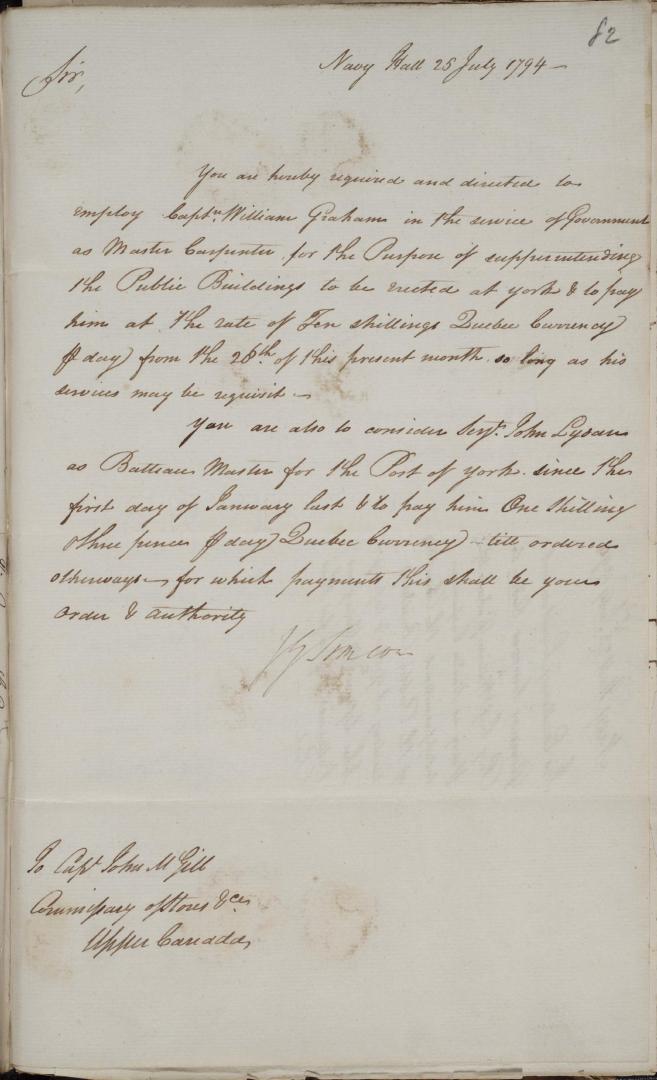 82
Navy Hall 25 July 1794 —
Sir,
You are hereby required and directed to
employ Captn. William Graham in the service of Government
as Master Carpenter for the Purpose of supperintending
the Public Buildings to be erected at york & to pay
him at the rate of Ten shillings Quebec Currency
℔ day) from the 26th. of this present month so long as his
services may be requisit —
You are also to consider Serjt. John
as Batteau Master for the Post of york since the
first day of January last & to pay him One Shilling
& three pence ℔ day) Quebec Currency — till ordered
otherways — for which payments this shall be your
order & authority
J G Simcoe
To Capt John McGill
Commissary of Stores &ca
Upper Canada